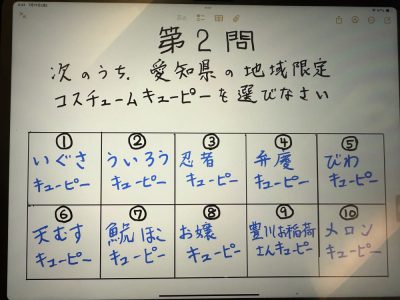 第2問
次のうち、愛知県の地域限定
コスチュームキューピーを選びなさい
① いぐさ キューピー
② ういろう キューピー
③ 忍者 キューピー
④ 弁慶 キューピー
⑤ びわ キューピー
⑥ 天むす キューピー
⑦ 鯱ほこ キューピー
⑧ お嬢 キューピー
⑨ 豊川お稲荷 さんキューピー
⑩ メロン キューピー